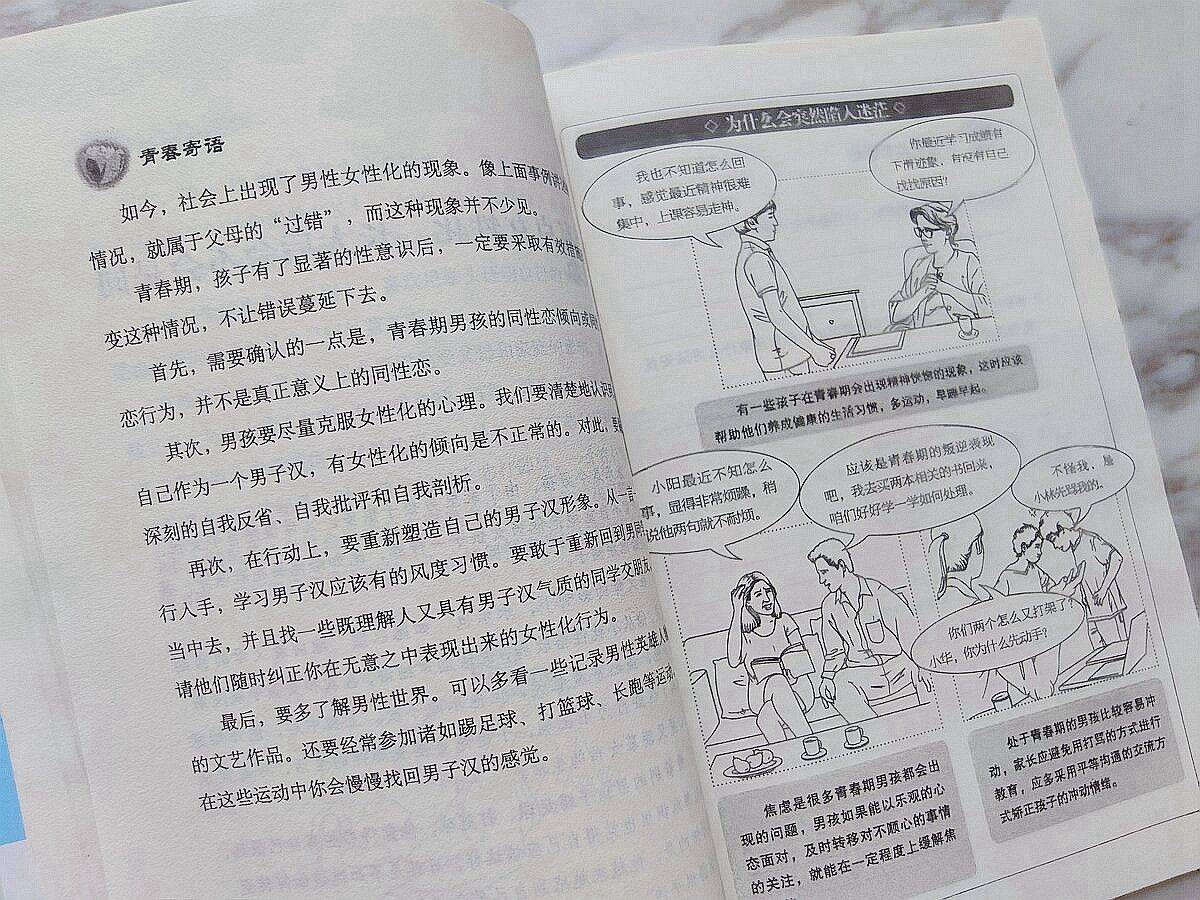 青春寄语
如今，社会上出现了男性女性化的现象。像上面事例
情况，就属于父母的“过错”，而这种现象并不少见。
青春期，孩子有了显著的性意识后，一定要采取有效措
变这种情况，不让错误蔓延下去。
首先，需要确认的一点是，青春期男孩的同性恋倾向或
恋行为，并不是真正意义上的同性恋。
其次，男孩要尽量克服女性化的心理。我们要清楚地认识
自己作为一个男子汉，有女性化的倾向是不正常的。对此，要
深刻的自我反省、自我批评和自我剖析。
再次，在行动上，要重新塑造自己的男子汉形象。从一言
行入手，学习男子汉应该有的风度习惯。要敢于重新回到男同
当中去，并且找一些既理解人又具有男子汉气质的同学交朋友
请他们随时纠正你在无意之中表现出来的女性化行为。
最后，要多了解男性世界。可以多看一些记录男性英雄人
的文艺作品。还要经常参加诸如踢足球、打篮球、长跑等运动
在这些运动中你会慢慢找回男子汉的感觉。
◇ 为什么会突然陷入迷茫 ◇
我也不知道怎么回
事，感觉最近精神很难
集中，上课容易走神。
你最近学习成绩有
下滑迹象，有没有自己
找找原因？
有一些孩子在青春期会出现精神恍惚的现象，这时应该
帮助他们养成健康的生活习惯，多运动，早睡早起。
小阳最近不知怎么
事，显得非常烦躁，稍
说他两句就不耐烦。
应该是青春期的叛逆表现
吧，我去买两本相关的书回来，
咱们好好学一学如何处理。
不怪我，是
小林先骂我的。
你们两个怎么又打架了？
小华，你为什么先动手？
焦虑是很多青春期男孩都会出
现的问题，男孩如果能以乐观的心
态面对，及时转移对不顺心的事情
的关注，就能在一定程度上缓解焦
处于青春期的男孩比较容易冲
动，家长应避免用打骂的方式进行
教育，应多采用平等沟通的交流方
式矫正孩子的冲动情绪。